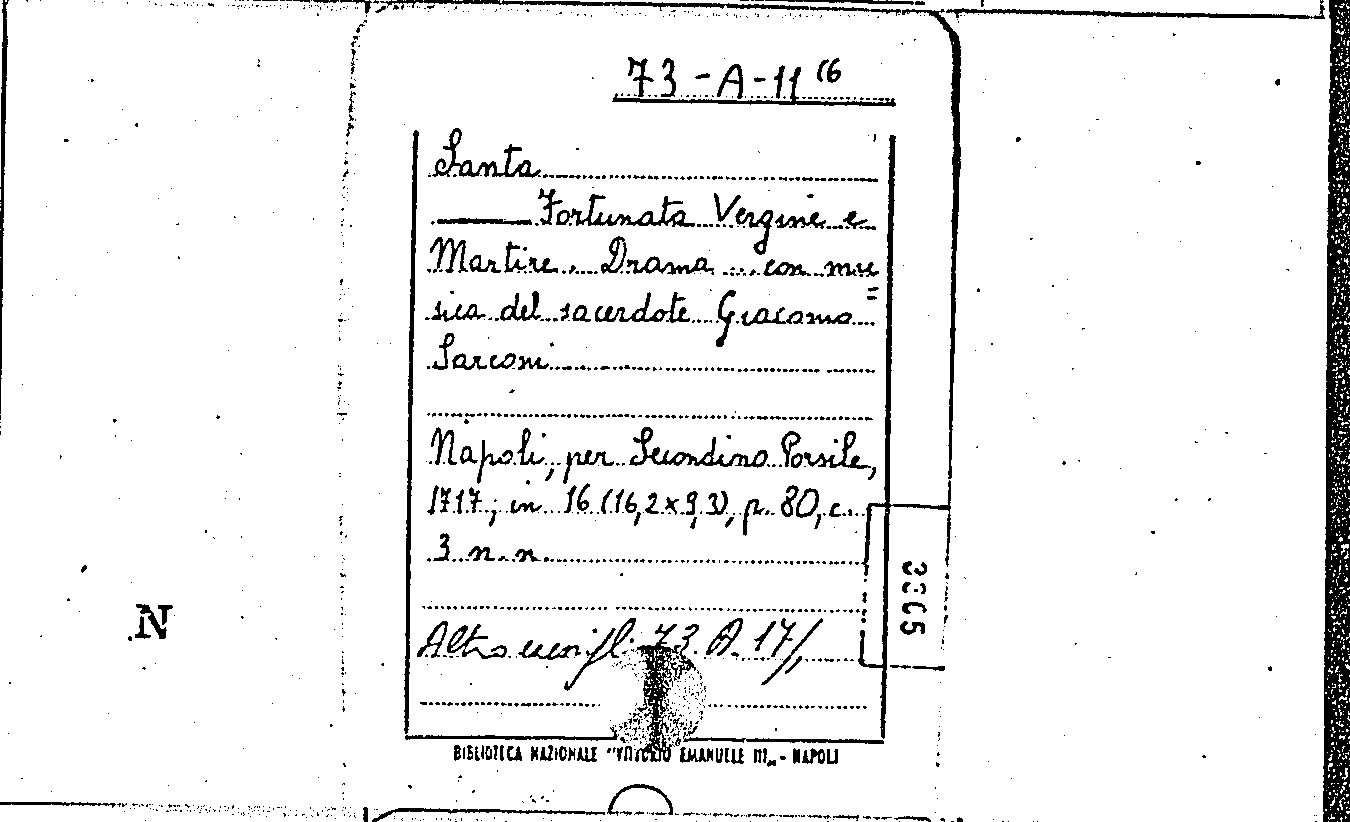 73-A-11 (6
Santa
——— Fortunata Vergine e
Martire. Drama ... con mu
=
sica del sacerdote Giacomo
Sarconi
Napoli, per Secondino Porsile,
1717; in 16 (16,2x9,3), p. 80, c.
3 n.n.
3865
N
Altro esempl. 73. A. 17/,
BIBLIOTECA NAZIONALE "VITTORIO EMANUELE III„ - NAPOLI